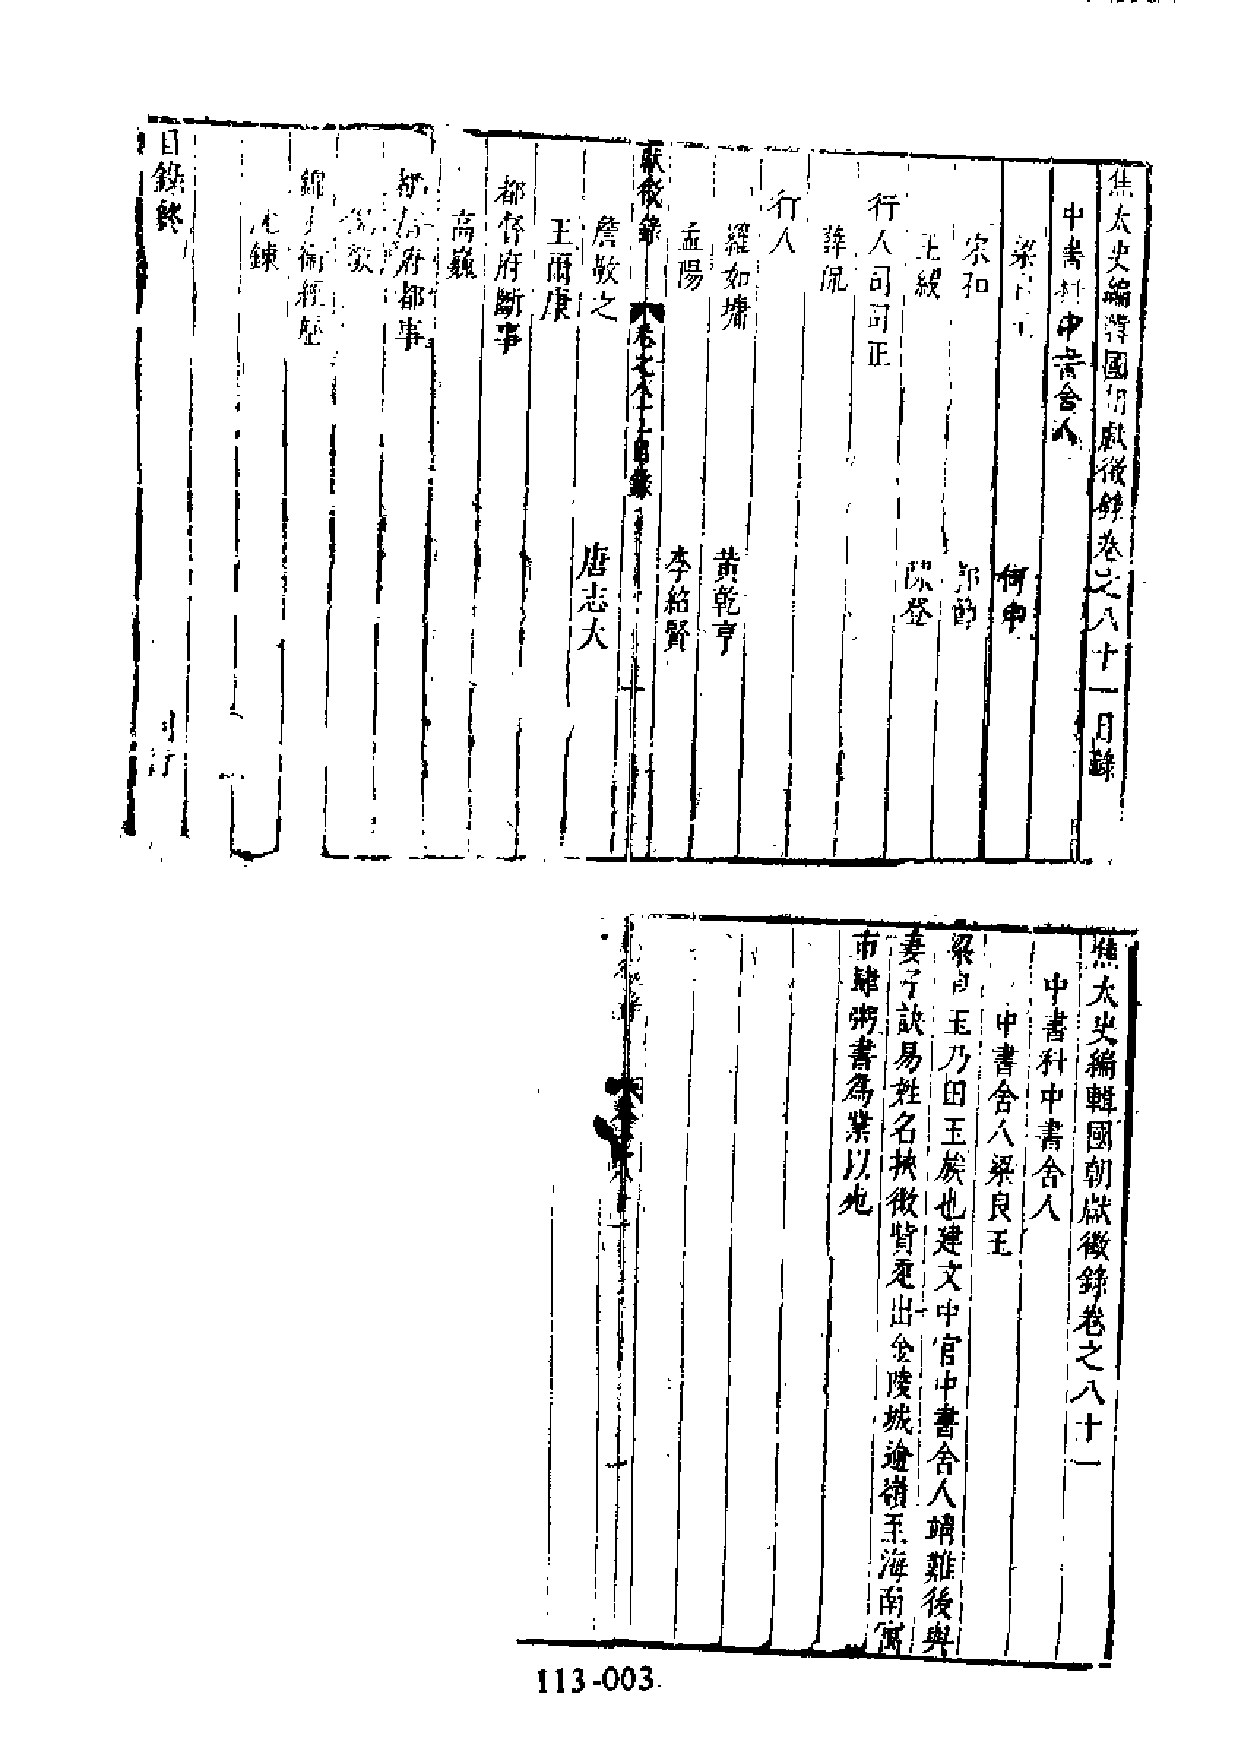 焦太史編輯國朝獻徵錄卷之八十一目錄
中書科中書舍人
梁 何申
宋和
王綬 陳登
行人司司正
薛侃
行人
羅如墉 黃乾亨
孟陽 李紹賢
獻徵錄 卷之八十一目錄 一
詹敬之 唐志大
王爾康
都督府斷事
高巍
都督府都事
錦衣衛經歷
沈鍊
目錄終
焦太史編輯國朝獻徵錄卷之八十一
中書科中書舍人
中書舍人梁良玉
梁良玉乃田玉族也建文中官中書舍人靖難後與
妻子訣易姓名挾微貲走出金陵城逾嶺至海南寓
市肆粥書為業以死
卷之八十一 一
113-003